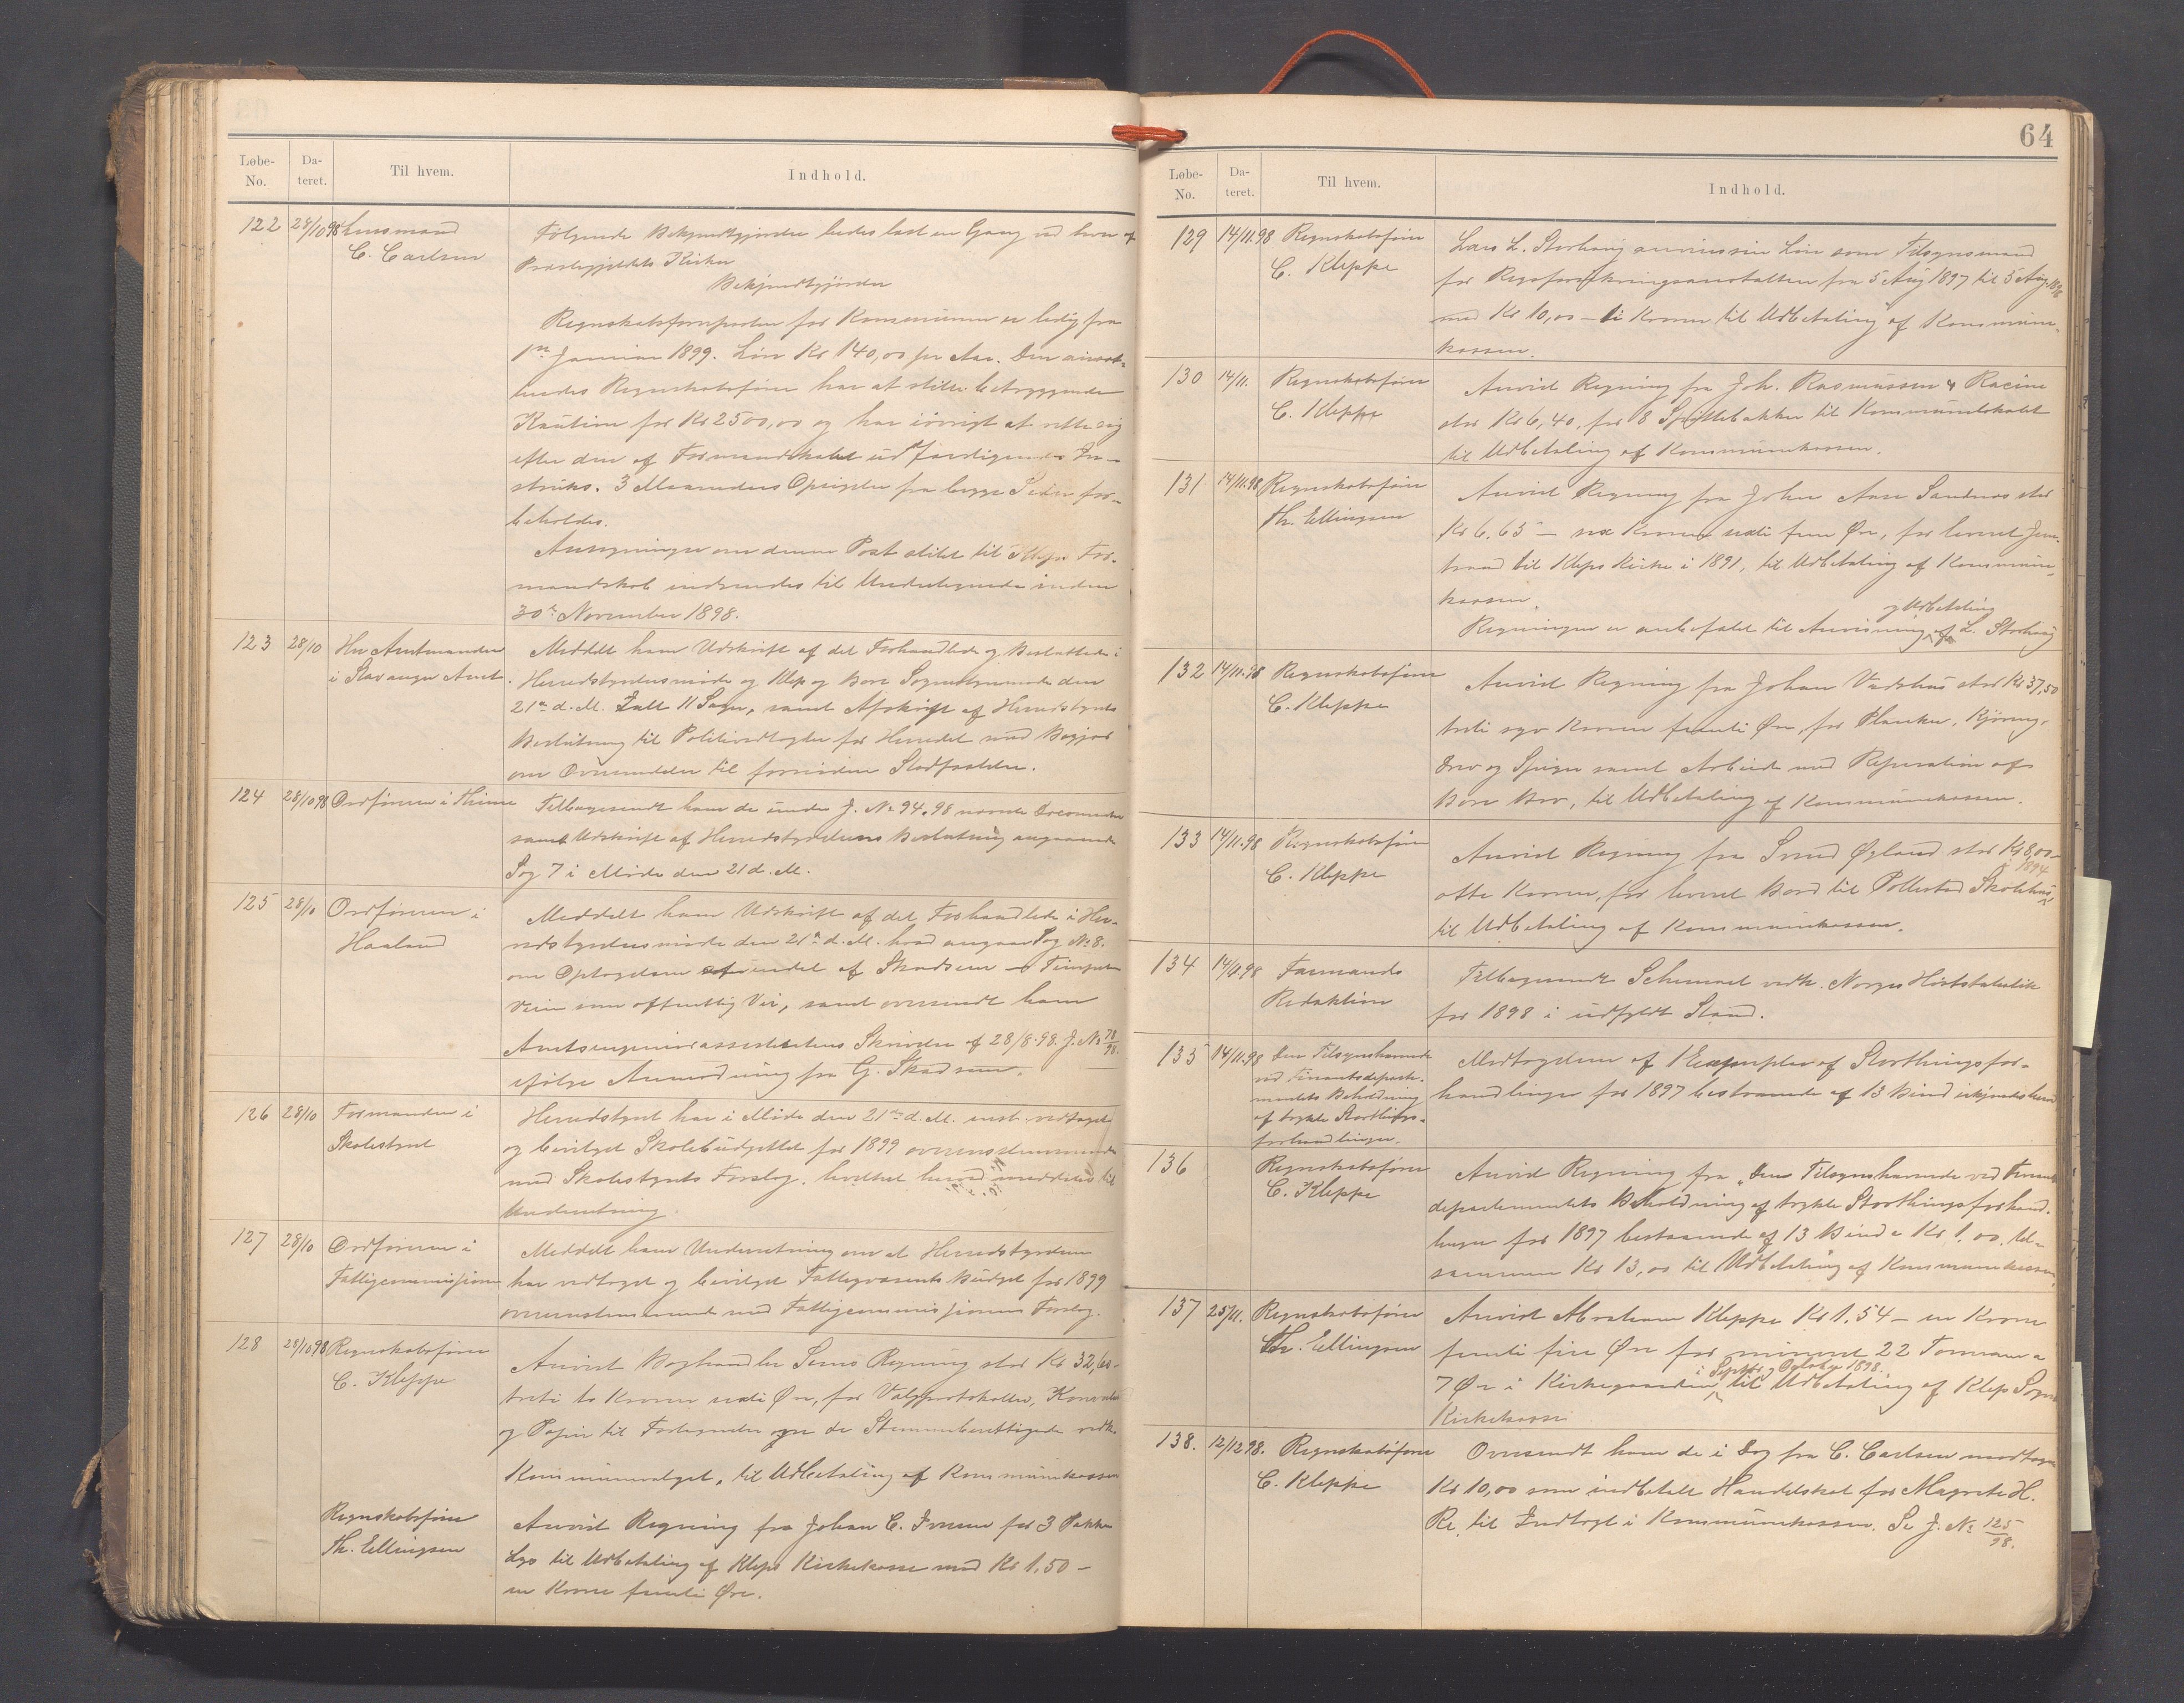 Løbe-No. Dateret. Til hvem. Indhold.
122 28/10 98 Lensmand C. Carlsen
Følgende Bekjendtgjørelse bedes læst en Gang ved hver af
Præstegjeldets Kirker
Bekjendtgjørelse
Regnskabsførerposten for Kommunen er ledig fra
1ste Januar 1899. Løn Kr 140,00 pr Aar. Den ansæt-
tendes Regnskabsfører har at stille betryggende
Kaution for Kr 2500,00 og har iøvrigt at rette sig
efter den af Formandskabet udfærdigende In-
struks. 3 Maaneders Opsigelse fra begge Sider for-
beholdes.
Ansøgninger om denne Post stilet til Kleps For-
mandskab indsendes til Undertegnede inden
30te November 1898.
123 28/10 Hr Amtmanden i Stavanger Amt.
Meddelt ham Udskrift af det Forhandlede og Besluttede i
Herredstyrelsesmøde og Klep og Bore Sognestyremøde den
21de d. M. Ialt 11 Sager, samt Afskrift af Herredstyrets
Beslutning til Politivedtægter for Herredet med Begjær
om Oversendelse til fornøden Stadfæstelse.
124 28/10 98 Ordføreren i Thime
Tilbagesendt ham de under J. No 94.98 nævnte Documenter
samt Udskrift af Herredstyrelsens Beslutning angaaende
Sag 7 i Møde den 21 d. M.
125 28/10 Ordføreren i Haaland
Meddelt ham Udskrift af det Forhandlede i Her-
redstyrelsesmøde den 21de d. M. hvad angaar Sag No 8.
om Optagelsen af endel af Skadsem –
Veien som offentlig Vei, samt oversendt ham
Amtsingeniørassistentens Skrivelse af 28/8.98. J. No 78/98.
ifølge Anmodning fra G. Skadsem.
126 28/10 Formanden i Skolestyret
Herredstyret har i Møde den 21de d. M. enst. vedtaget
og bevilget Skolebudgettet for 1899 overensstemmende
med Skolestyrets Forslag, hvilket herved meddeles til
Underretning.
127 28/10 Ordføreren i Fattigcommissionen
Meddelt ham Underretning om at Herredstyrelsen
har vedtaget og bevilget Fattigvæsenets Budget for 1899
overensstemmende med Fattigcommissionens Forslag.
128 28/10 98 Regnskabsfører C. Kleppe
Anvist Boghandler Sems Regning stor Kr 32,60 –
treti to Kroner seksti Øre, for Valgprotokoller,
og Papir til Fortegnelse over de Stemmeberettigede vedk.
Kommunevalget, til Udbetaling af Kommunekassen
Regnskabsfører Th. Ellingsen
Anvist Regning fra Johan C. Iversen for 3 Pakker
Lys til Udbetaling af Kleps Kirkekasse med Kr 1,50 –
en Krone femti Øre.
64
Løbe-No. Dateret. Til hvem. Indhold.
129 14/11.98 Regnskabsfører C. Kleppe
Lars L. Storhaug anvises sin Løn som Tilsynsmand
for Rigsforsikringsanstalten fra 5 Aug 1897 til 5 Aug 1898
med Kr 10,00 – ti Kroner til Udbetaling af Kommune-
kassen.
130 14/11. Regnskabsfører C. Kleppe
Anvist Regning fra Joh. Rasmussen & Racine
stor Kr 6,40, for 8 Spyttebakker til Kommunelokalet
til Udbetaling af Kommunekassen.
131 14/11.98 Regnskabsfører Th. Ellingsen
Anvist Regning fra John Aase Sandnes stor
Kr 6.65 – sex Kroner seksti fem Øre, for leveret Jern-
traad til Kleps Kirke i 1891, til Udbetaling af Kommune-
kassen.
Regningen er anbefalet til Anvisning og Udbetaling af L. Storhaug
132 14/11.98 Regnskabsfører C. Kleppe
Anvist Regning fra Johan Vadshus stor Kr 37,50
treti syv Kroner femti Øre, for Planker, Kjøring,
Drev og Spiger samt Arbeide med Reparation af
Bore Bro, til Udbetaling af Kommunekassen.
133 14/11.98 Regnskabsfører C. Kleppe
Anvist Regning fra Svend Øgland stor Kr 8,00 –
otte Kroner, for leveret Bord til Pollestad Skolehus i 1894
til Udbetaling af Kommunekassen.
134 14/11.98 Farmands Redaktion
Tilbagesendt Schemaet vedk. Norges Høststatistik
for 1898 i udfyldt Stand.
135 14/11.98 Den Tilsynshavende
ved Finantsdeparte-
mentets Beholdning
af trykte Storthings-
forhandlinger.
Modtagelsen af 1 Exemplar af Storthingsfor-
handlinger for 1897 bestaaende af 13 Bind erkjendes herved
136 Regnskabsfører C. Kleppe
Anvist Regning fra „Den Tilsynshavende ved Finants-
departementets Beholdning af trykte Storthingsforhand-
linger for 1897 bestaaende af 13 Bind a Kr 1.00, til-
sammen Kr 13,00 til Udbetaling af Kommunekassen.
137 25/11. Regnskabsfører Th. Ellingsen
Anvist Abraham Kleppe Kr 1.54 – en Krone
femti fire Øre for 22 a
7 Øre i Kirkegaarden i Septbr og Oktober 1898. til Udbetaling af Klep Sogns
Kirkekasse
138. 12/12 98. Regnskabsfører C. Kleppe
Oversendt ham de i Dag fra C. Carlsen modtagne
Kr 10,00 som indbetalt Handelskat for Magrete H.
Re, til Indtægt i Kommunekassen. Se J. No 125/98.